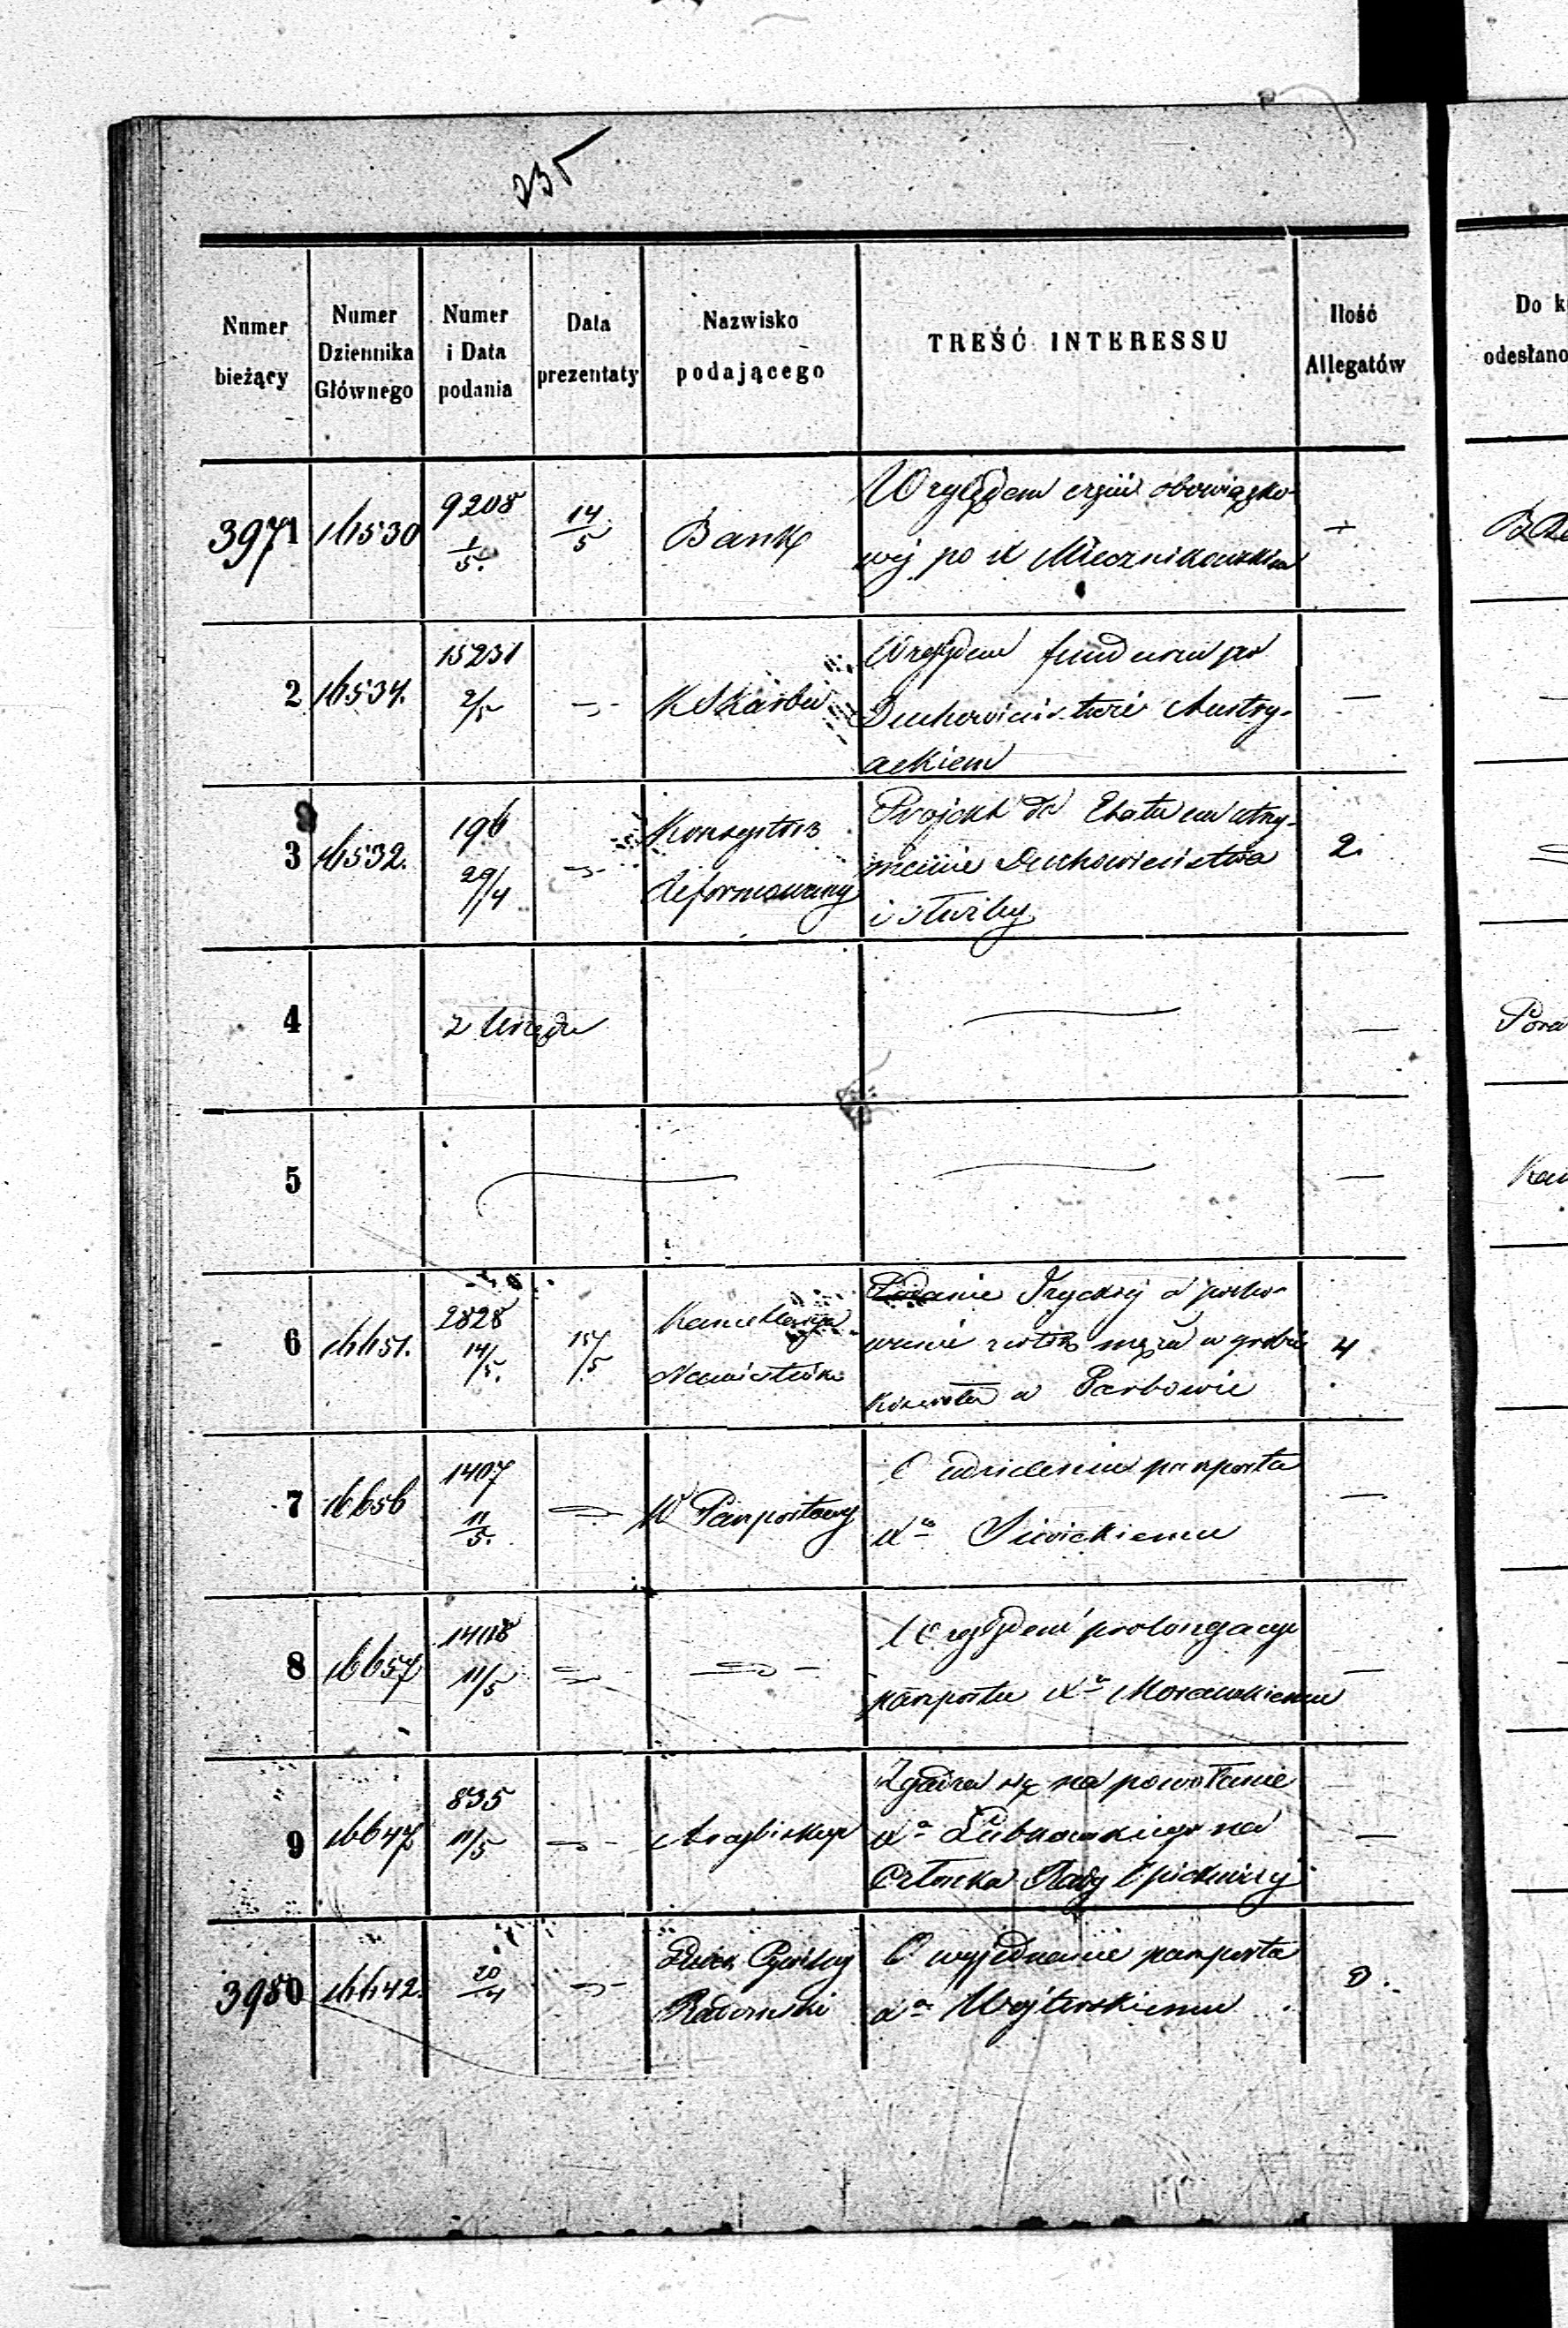 235
Numer bieżący
Numer Dziennika Głównego
Numer i Data podania
Data prezentaty
Nazwisko podającego
TREŚĆ INTERESSU
Ilość Allegatów
Do k
odesłano
3971 16530 9208 1/5. 14/5 Bank
Względem części obowiązko-
wéj po X Miecznikowskim
2 16534. 15231 2/5 K Skarbu —
Względem funduszu po
Duchowieństwie Austry-
ackiem
3 16532. 196 29/4 Konsystorz 2.
Reformowany
Projekt do Etatu na utrzy-
manie Duchowieństwa
i służby
4 z Urzędu —
5 —
6 16651. 2828 14/5. 15/5 Kancellarya 4
Namiestnika
Podanie o pocho-
wanie zwłok męża w grobie
kościoła w Parbowie
7 16656 1407 11/5. W Paszportowy —
O udzielenie paszportu
Xu Siwickiemu
8 16657 1408 11/5 —
Względem prolongacyi
paszportu Xu Morawskiemu
9 16647 835 11/5 Arcybiskup —
Zgadza się na powołanie
Xa Dubrowskiego na
Członka Rady Opiekuńczéj
3980 16642. 20/4 Cywilny 3.
Radomski
O wyjednanie paszportu
Xu Wojterskiemu